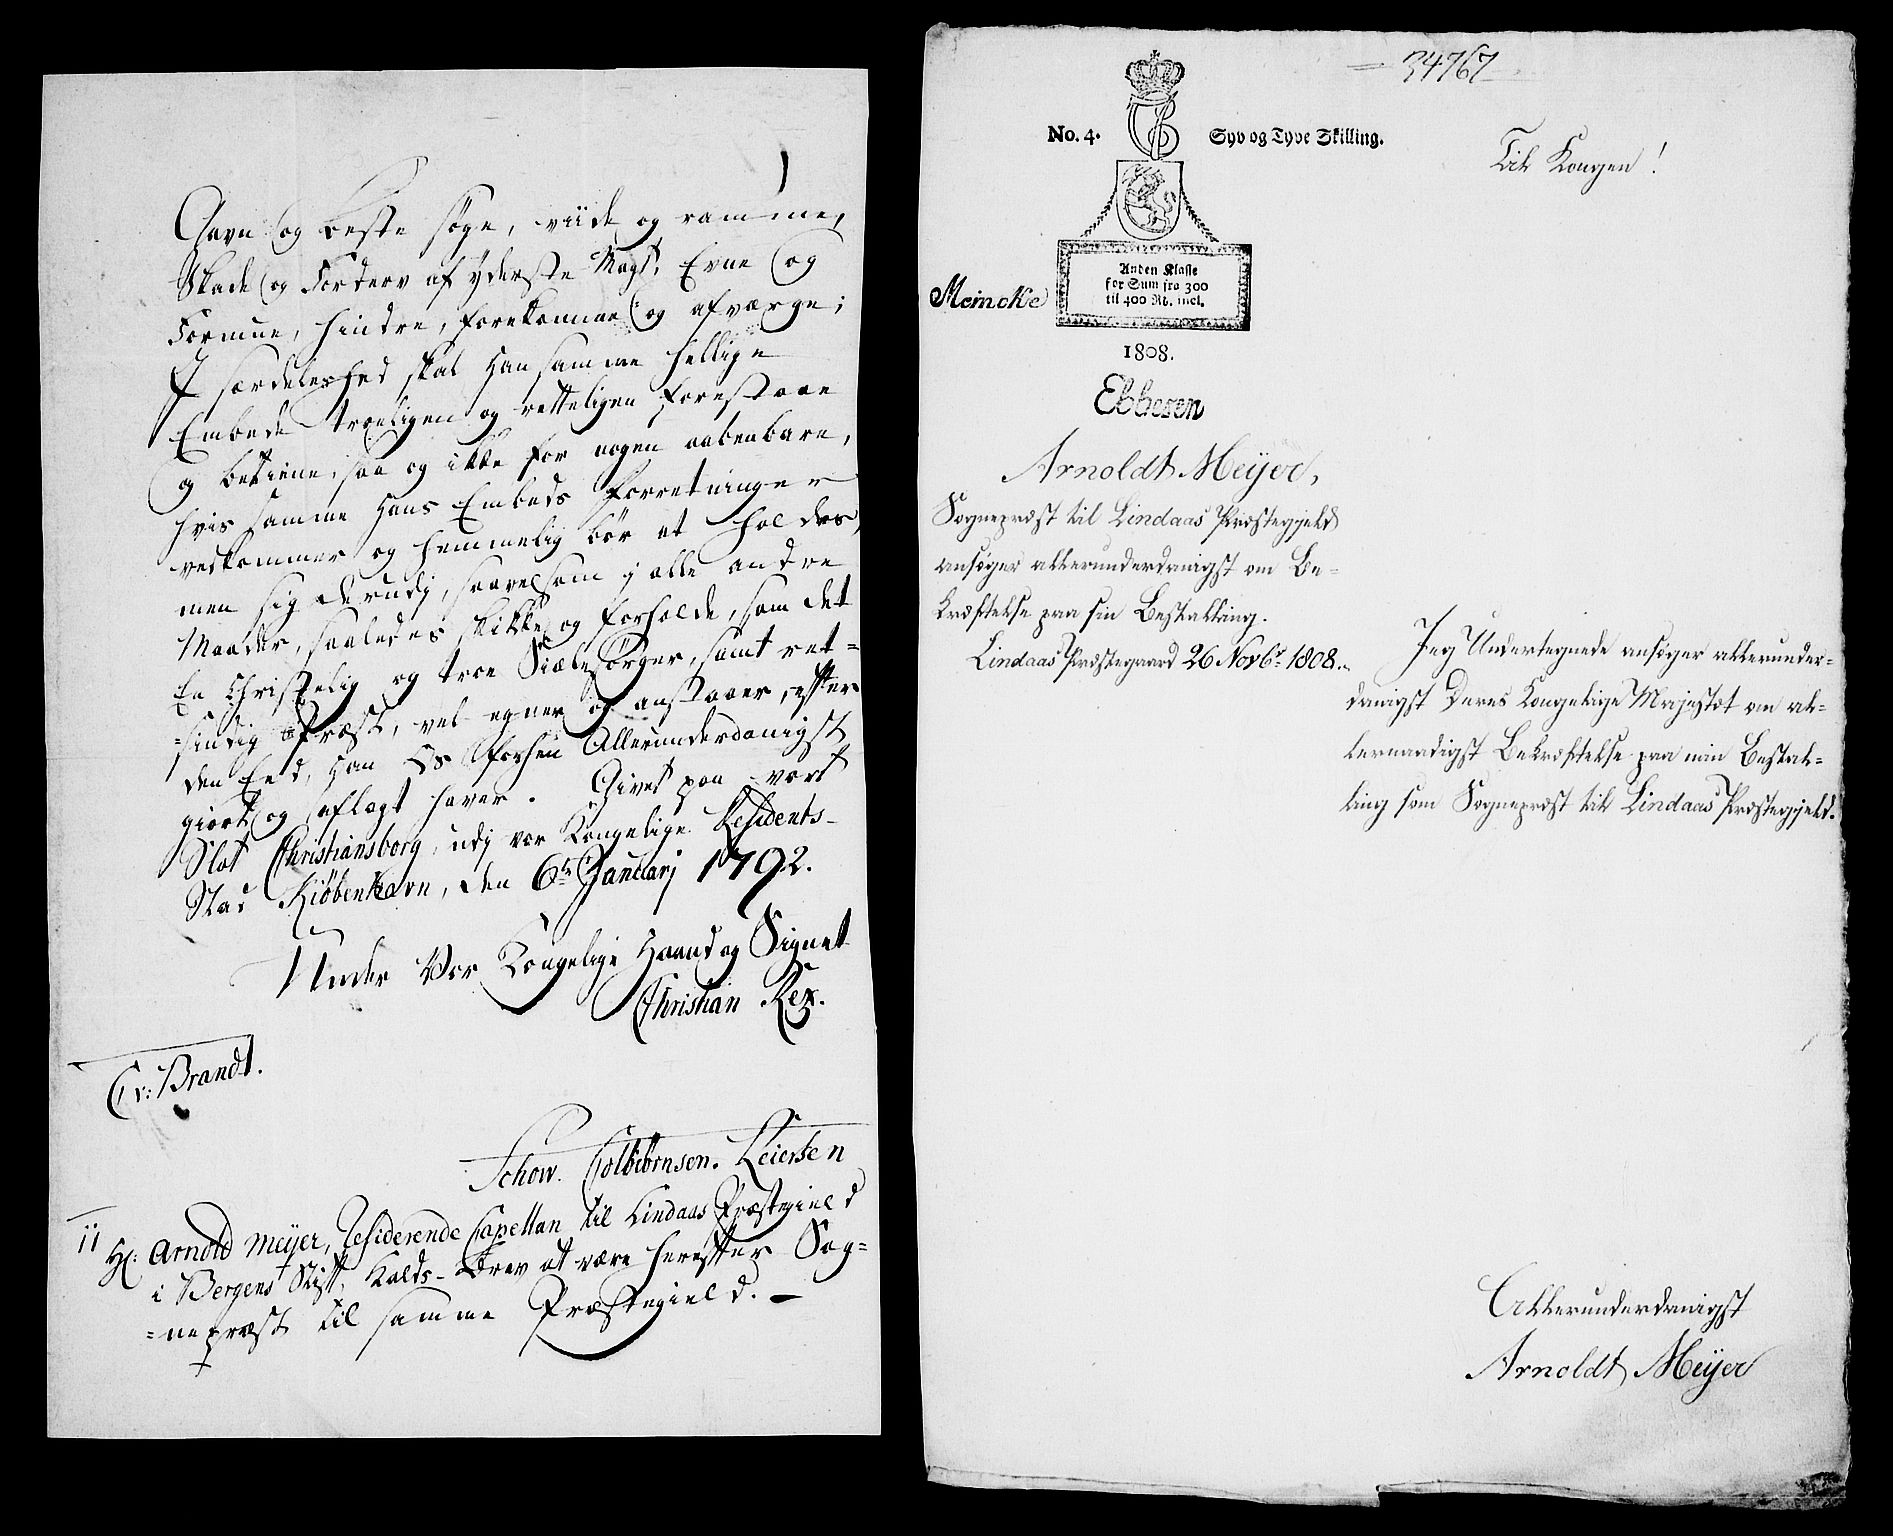 Gavn og beste søge, viide og ramme,
Skade og Forderv af yderste Magt, Evne og
Formue, hindre, forekomme og afværge;
I særdeleshed skal Han samme hellige
Embede troeligen og retteligen forestaae
og betiene, saa og ikke for nogen aabenbare,
hvis samme Hans Embeds Forretninger
vedkommer og hemmelig bør at holdes,
men sig derudj, saavelsom j alle andre
Maader, saaledes skikke og forholde, som det
En Christelig og troe Siælesørger, samt ret-
-sindig Præst, vel egner og anstaaer, efter
den Eed, Han Os forhen Allerunderdanigst
giort og aflagt haver. Givet paa vort
Slot Christiansborg, udj vor Kongelige Residents-
Stad Kiøbenhavn, den 6te Januarj 1792.
Under Vor Kongelige Haand og Signet
Christian Rex.
Cr: Brandt.
Schow. Colbiørnsen. Leiersen
Hr: Arnold Meyer, Residerende Capellan til Lindaas Præstegield
i Bergens Stift, Kalds-Brev at være herefter Sog-
-nepræst til samme Præstegield.
34767
No. 4. Syv og Tyve Skilling.
Til Kongen!
Anden Klasse
for Sum fra 300
til 400 Rd. incl.
Meincke
1808.
Ebbesen
Arnoldt Meÿer,
Sognepræst til Lindaas Præstegjeld
ansøger allerunderdanigst om Be-
kræftelse paa sin Bestalling.
Lindaas Præstegaard 26 Novbr 1808.
Jeg Undertegnede ansøger allerunder-
danigst Deres Kongelige Majestæt om al-
lernaadigst Bekræftelse paa min Bestal-
ling som Sognepræst til Lindaas Præstegjeld.
Allerunderdanigst
Arnoldt Meÿer